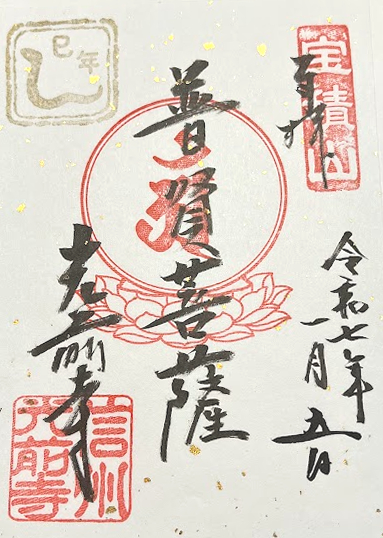 宝積山
奉拝
令和七年
一月五日
普賢菩薩
光前寺
巳年
信州
光前寺